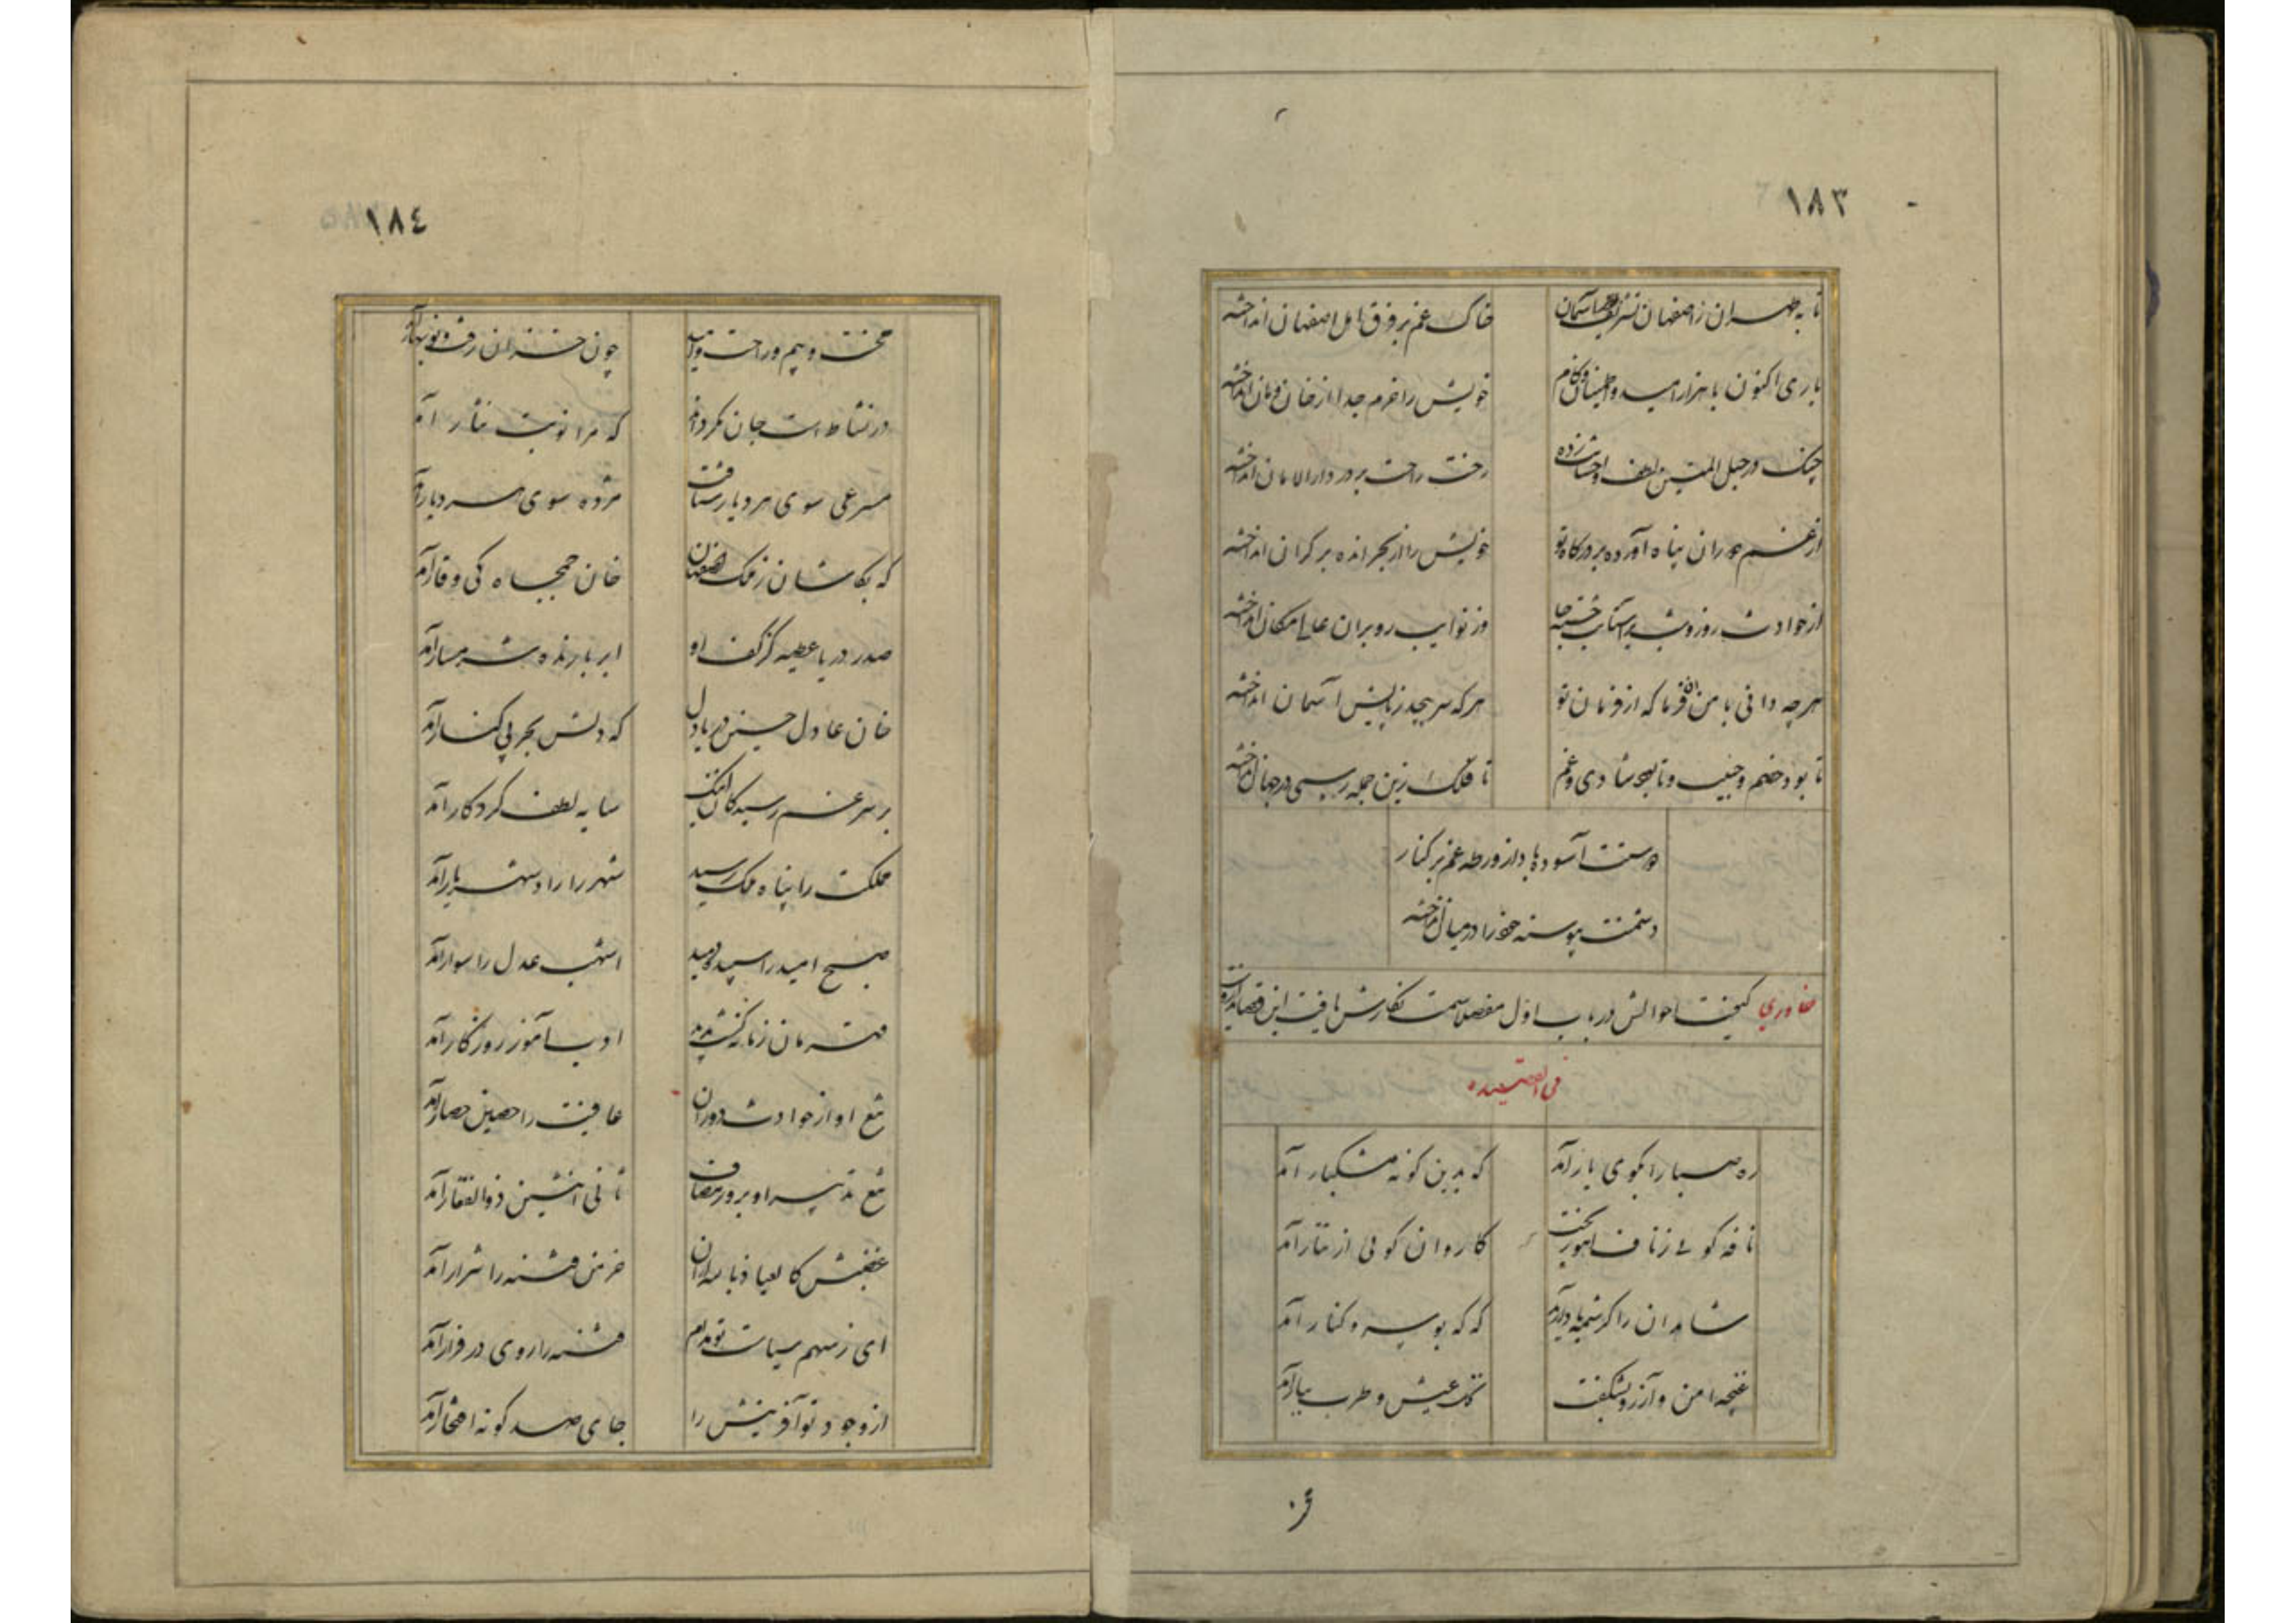 ۱۸۳
تا به طهران ز اصفهان تشریف
خاک غم بر فرق اهل اصفهان انداخته
باری اکنون با هزار امید و
خویش را خرم جدا از خان و مان انداخته
چنگ در حبل المتین لطف و احسانت زده
رخت راحت بر در دار الامان انداخته
از غم دوران پناه آورده بر درگاه تو
خویش را از بحر انده بر کران انداخته
از حوادث روز و شب
وز نوایب رو بر آن عالی مکان انداخته
هر چه دانی با من آن فرما که از فرمان تو
هر که سر پیچد ز پایش آسمان انداخته
تا بود خصم و حبیب و تا بود شادی و غم
تا فلک زین جمله رسمی در جهان انداخته
دوستت آسوده باد از ورطه غم بر کنار
دشمنت پیوسته خود را در میان انداخته
خاوری کیفیت احوالش در باب اول مفصلا سمت نگارش یافت این قصاید
فی القصیده
ره صبا را بکوی یار آمد
که بدین گونه مشکبار آمد
نافه گوئی ز ناف آهو ریخت
کاروان گوئی از تتار آمد
شاهدان را کرشمه یاد آمد
که گه بوسه و کنار آمد
غنچه امن و آرزو بشکفت
تاک عیش و طرب ببار آمد
۱۸٤
محنت و بیم و راحت و امید
چون خزان رفت و نوبهار آمد
در نشاط است جان مگر داند
که مرا نوبت نثار آمد
مسرعی سوی هر دیار شتافت
مژده سوی هر دیار آمد
که بکاشان ز ملک اصفاهان
خان جمجاه کی وقار آمد
صدر دریا عطیه کز کف او
ابر بارنده شرمسار آمد
خان عادل حسین دریا دل
که دلش بحر بی کنار آمد
بر سر غم رسید کان اینک
سایه لطف کردگار آمد
مملکت را پناه ملک رسید
شهر را راد شهریار آمد
صبح امید را سپیده دمید
اشهب عدل را سوار آمد
قهرمان زمانه گشت پدید
ادب آموز روزگار آمد
منع او از حوادث دوران
عافیت را حصین حصار آمد
تیغ تدبیر او بروز مصاف
ثانی اثنین ذو الفقار آمد
غضبش کالعیاذ بالله از آن
خرمن فتنه را شرار آمد
ای ز سهم سیاست تو مدام
فتنه را روی در فرار آمد
از وجود تو آفرینش را
جای صد گونه افتخار آمد